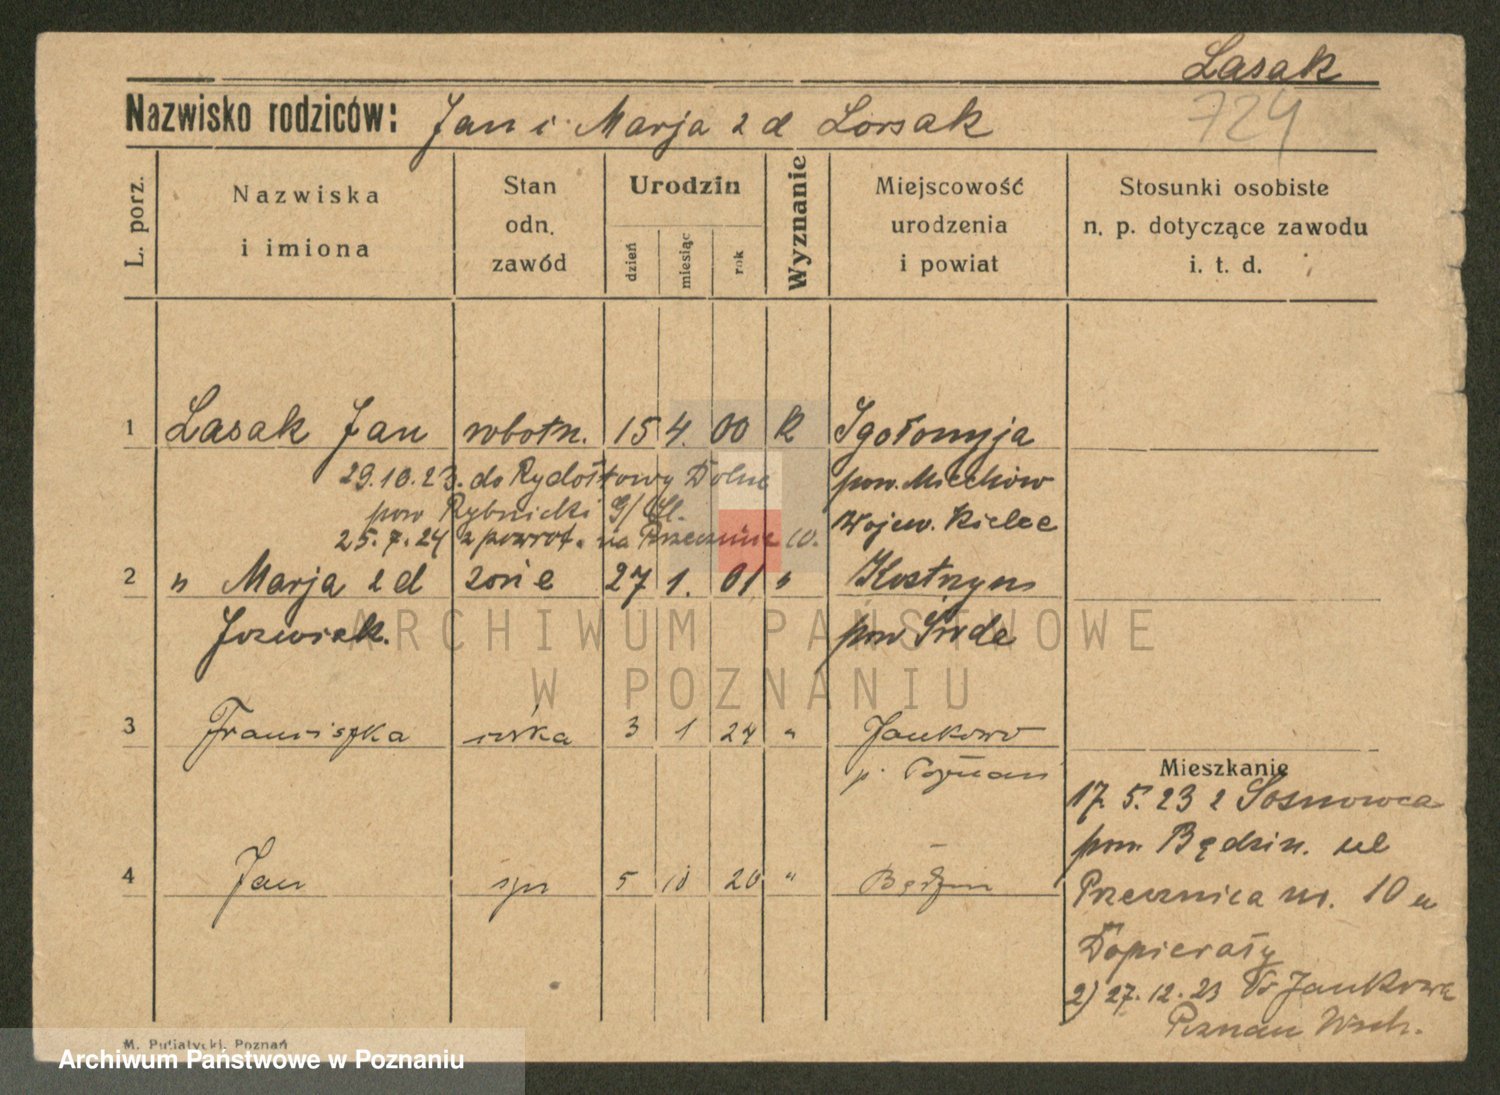 Lasak
724
Nazwisko rodziców: Jan i Marja z d Lorsak
L. porz.
Nazwiska i imiona
Stan odn. zawód
Urodzin
dzień
miesiąc
rok
Wyznanie
Miejscowość urodzenia i powiat
Stosunki osobiste n. p. dotyczące zawodu i. t. d.
1 Lasak Jan robotn. 15 4. 00 k Igołomyja
29.10.23. do Rydołtowy Dolne pow. Miechów
pow Rybnicki G/Śl. Wojew. Kielce
25.7.24 z powrot. na Przecznice 10.
2 " Marja z d żonie 27 1. 01 " Kostrzyn
Jozwiak. pow Środa
3 Franciszka córka 3 1 24 " Jankowo
p. Poznań
4 Jan syn 5 10 20 " Będzin
Mieszkanie
17. 5. 23 z Sosnowca
pow. Będzin. ul
Przecznica nr. 10 u
Dopierały
2) 27.12.23 Jankowa
Poznań Wsch.
M. Putiatycki, Poznań
ARCHIWUM PAŃSTWOWE
W POZNANIU
Archiwum Państwowe w Poznaniu